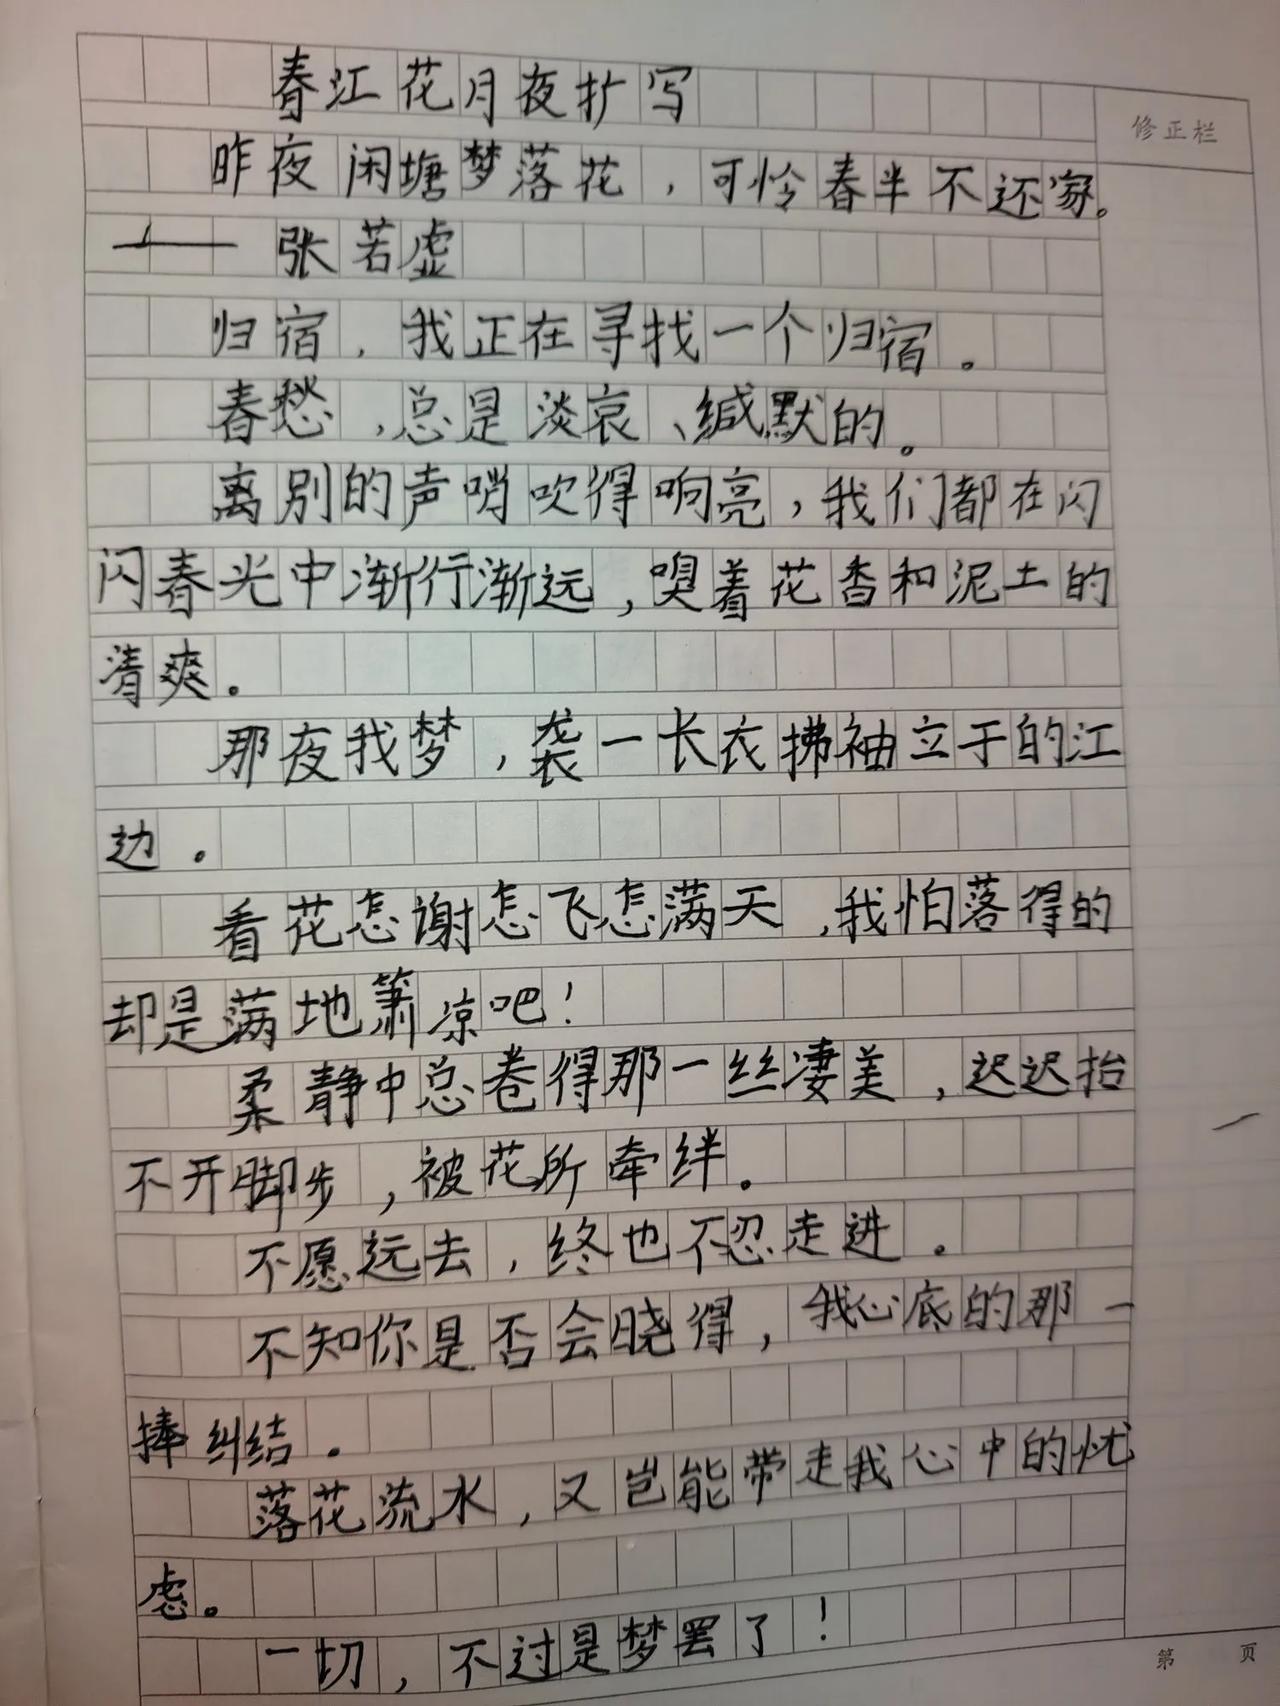 春江花月夜扩写
修正栏
昨夜闲塘梦落花，可怜春半不还家。
——张若虚
归宿，我正在寻找一个归宿。
春愁，总是淡哀、缄默的。
离别的声哨吹得响亮，我们都在闪
闪春光中渐行渐远，嗅着花香和泥土的
清爽。
那夜我梦，袭一长衣拂袖立于的江
边。
看花怎谢怎飞怎满天，我怕落得的
却是满地萧凉吧！
柔静中总卷得那一丝凄美，迟迟抬
不开脚步，被花所牵绊。
不愿远去，终也不忍走进。
不知你是否会晓得，我心底的那一
捧纠结。
落花流水，又岂能带走我心中的忧
虑。
一切，不过是梦罢了！
第 页